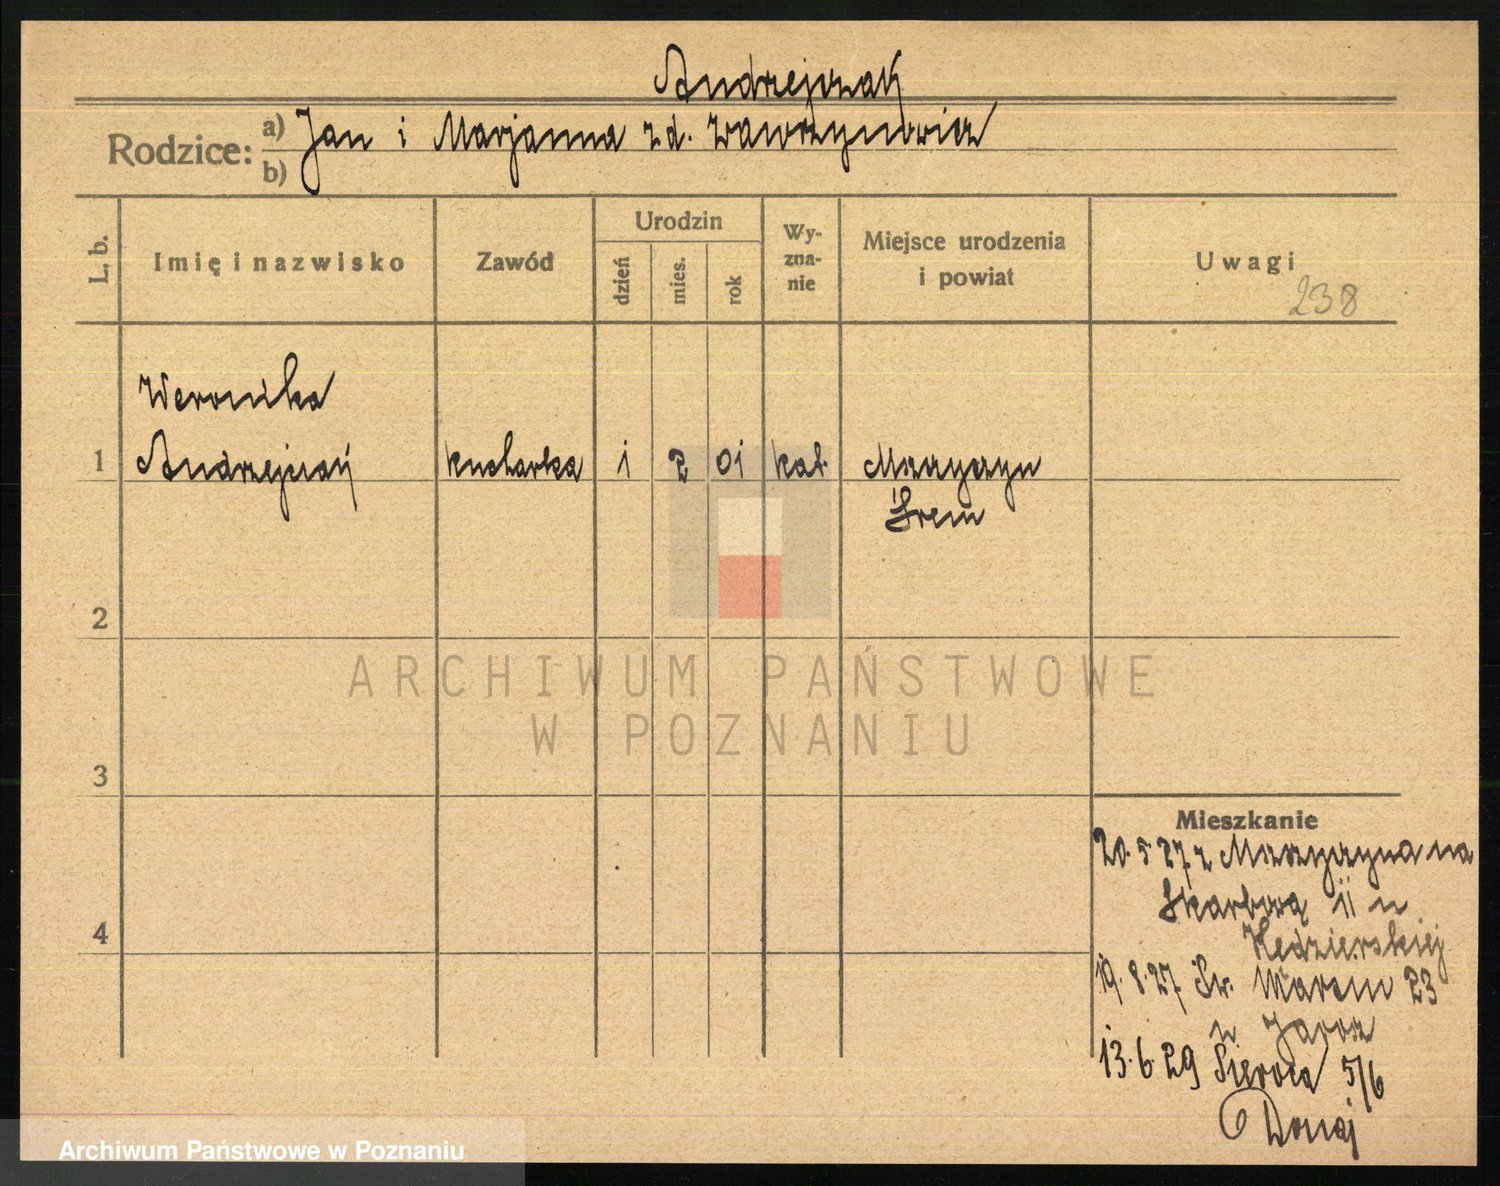 Andrzejczak
Rodzice: a) Jan i Marjanna zd. Wawrzynowicz
b)
L. b.
Imię i nazwisko
Zawód
Urodzin
dzień
mies.
rok
Wy-
zna-
nie
Miejsce urodzenia
i powiat
Uwagi
238
Weronika
1 Andrzejczak kucharka 1 2 01 kat.
Śrem
2
3
4
ARCHIWUM PAŃSTWOWE
W POZNANIU
Mieszkanie
20.5 27 z na
Skarbową 11 u
Kędzierskiej
19.8.27 Św. Marcin 23
u Jarosz
13.6.29 5/6
Archiwum Państwowe w Poznaniu